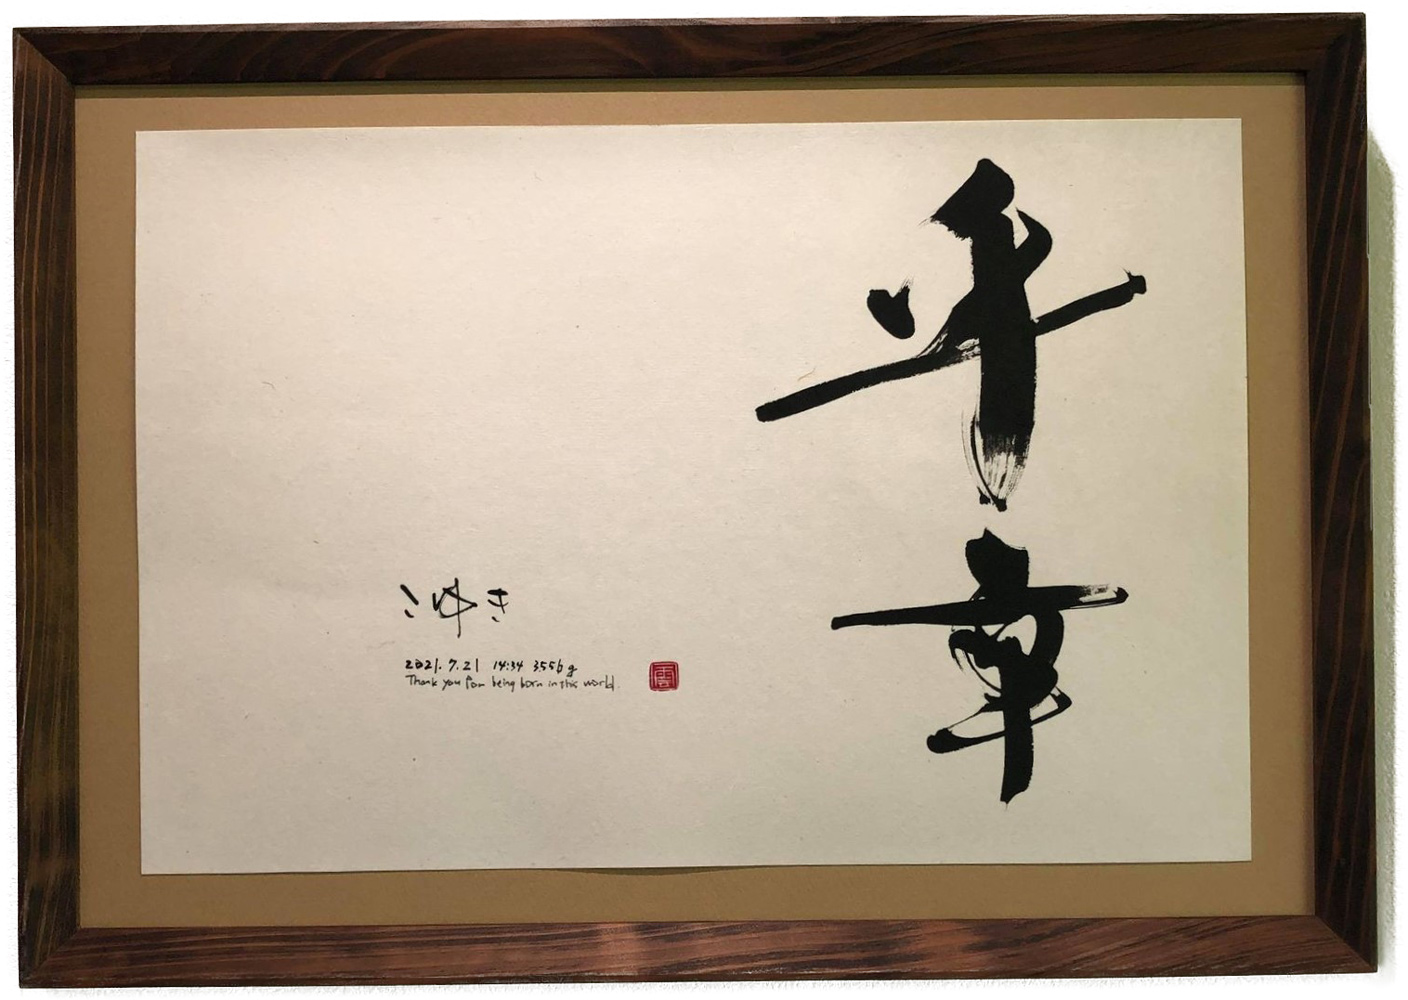 平章
こゆき
2021.7.21 14:34 3556g
Thank you for being born in this world.
雲